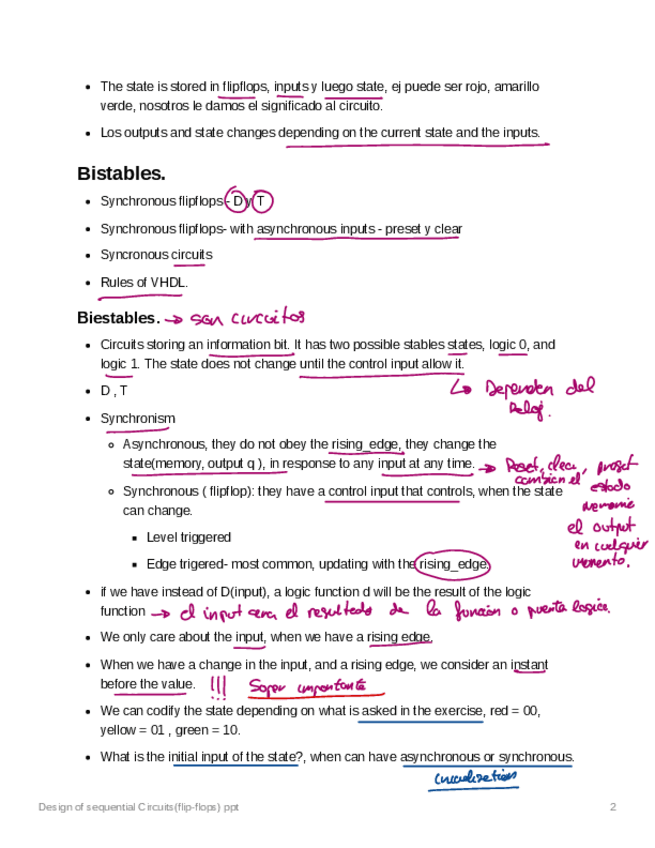 • The state is stored in flipflops, inputs y luego state, ej puede ser rojo, amarillo
verde, nosotros le damos el significado al circuito.
• Los outputs and state changes depending on the current state and the inputs.
Bistables.
• Synchronous flipflops - D y T
• Synchronous flipflops- with asynchronous inputs - preset y clear
• Syncronous circuits
• Rules of VHDL.
Biestables. → son circuitos
• Circuits storing an information bit. It has two possible stables states, logic 0, and
logic 1. The state does not change until the control input allow it.
↳ Dependen del
Reloj.
• D , T
• Synchronism
◦ Asynchronous, they do not obey the rising_edge, they change the
state(memory, output q ), in response to any input at any time. → Reset, clear, preset
cambian el estado
memoria
el output
en cualquier
momento.
◦ Synchronous ( flipflop): they have a control input that controls, when the state
can change.
▪ Level triggered
▪ Edge trigered- most common, updating with the rising_edge.
• if we have instead of D(input), a logic function d will be the result of the logic
function → el input sera el resultado de la función o puerta logica.
• We only care about the input, when we have a rising edge.
• When we have a change in the input, and a rising edge, we consider an instant
before the value. !!! Super importante
• We can codify the state depending on what is asked in the exercise, red = 00,
yellow = 01 , green = 10.
• What is the initial input of the state?, when can have asynchronous or synchronous.
Design of sequential Circuits(flip-flops) ppt
2